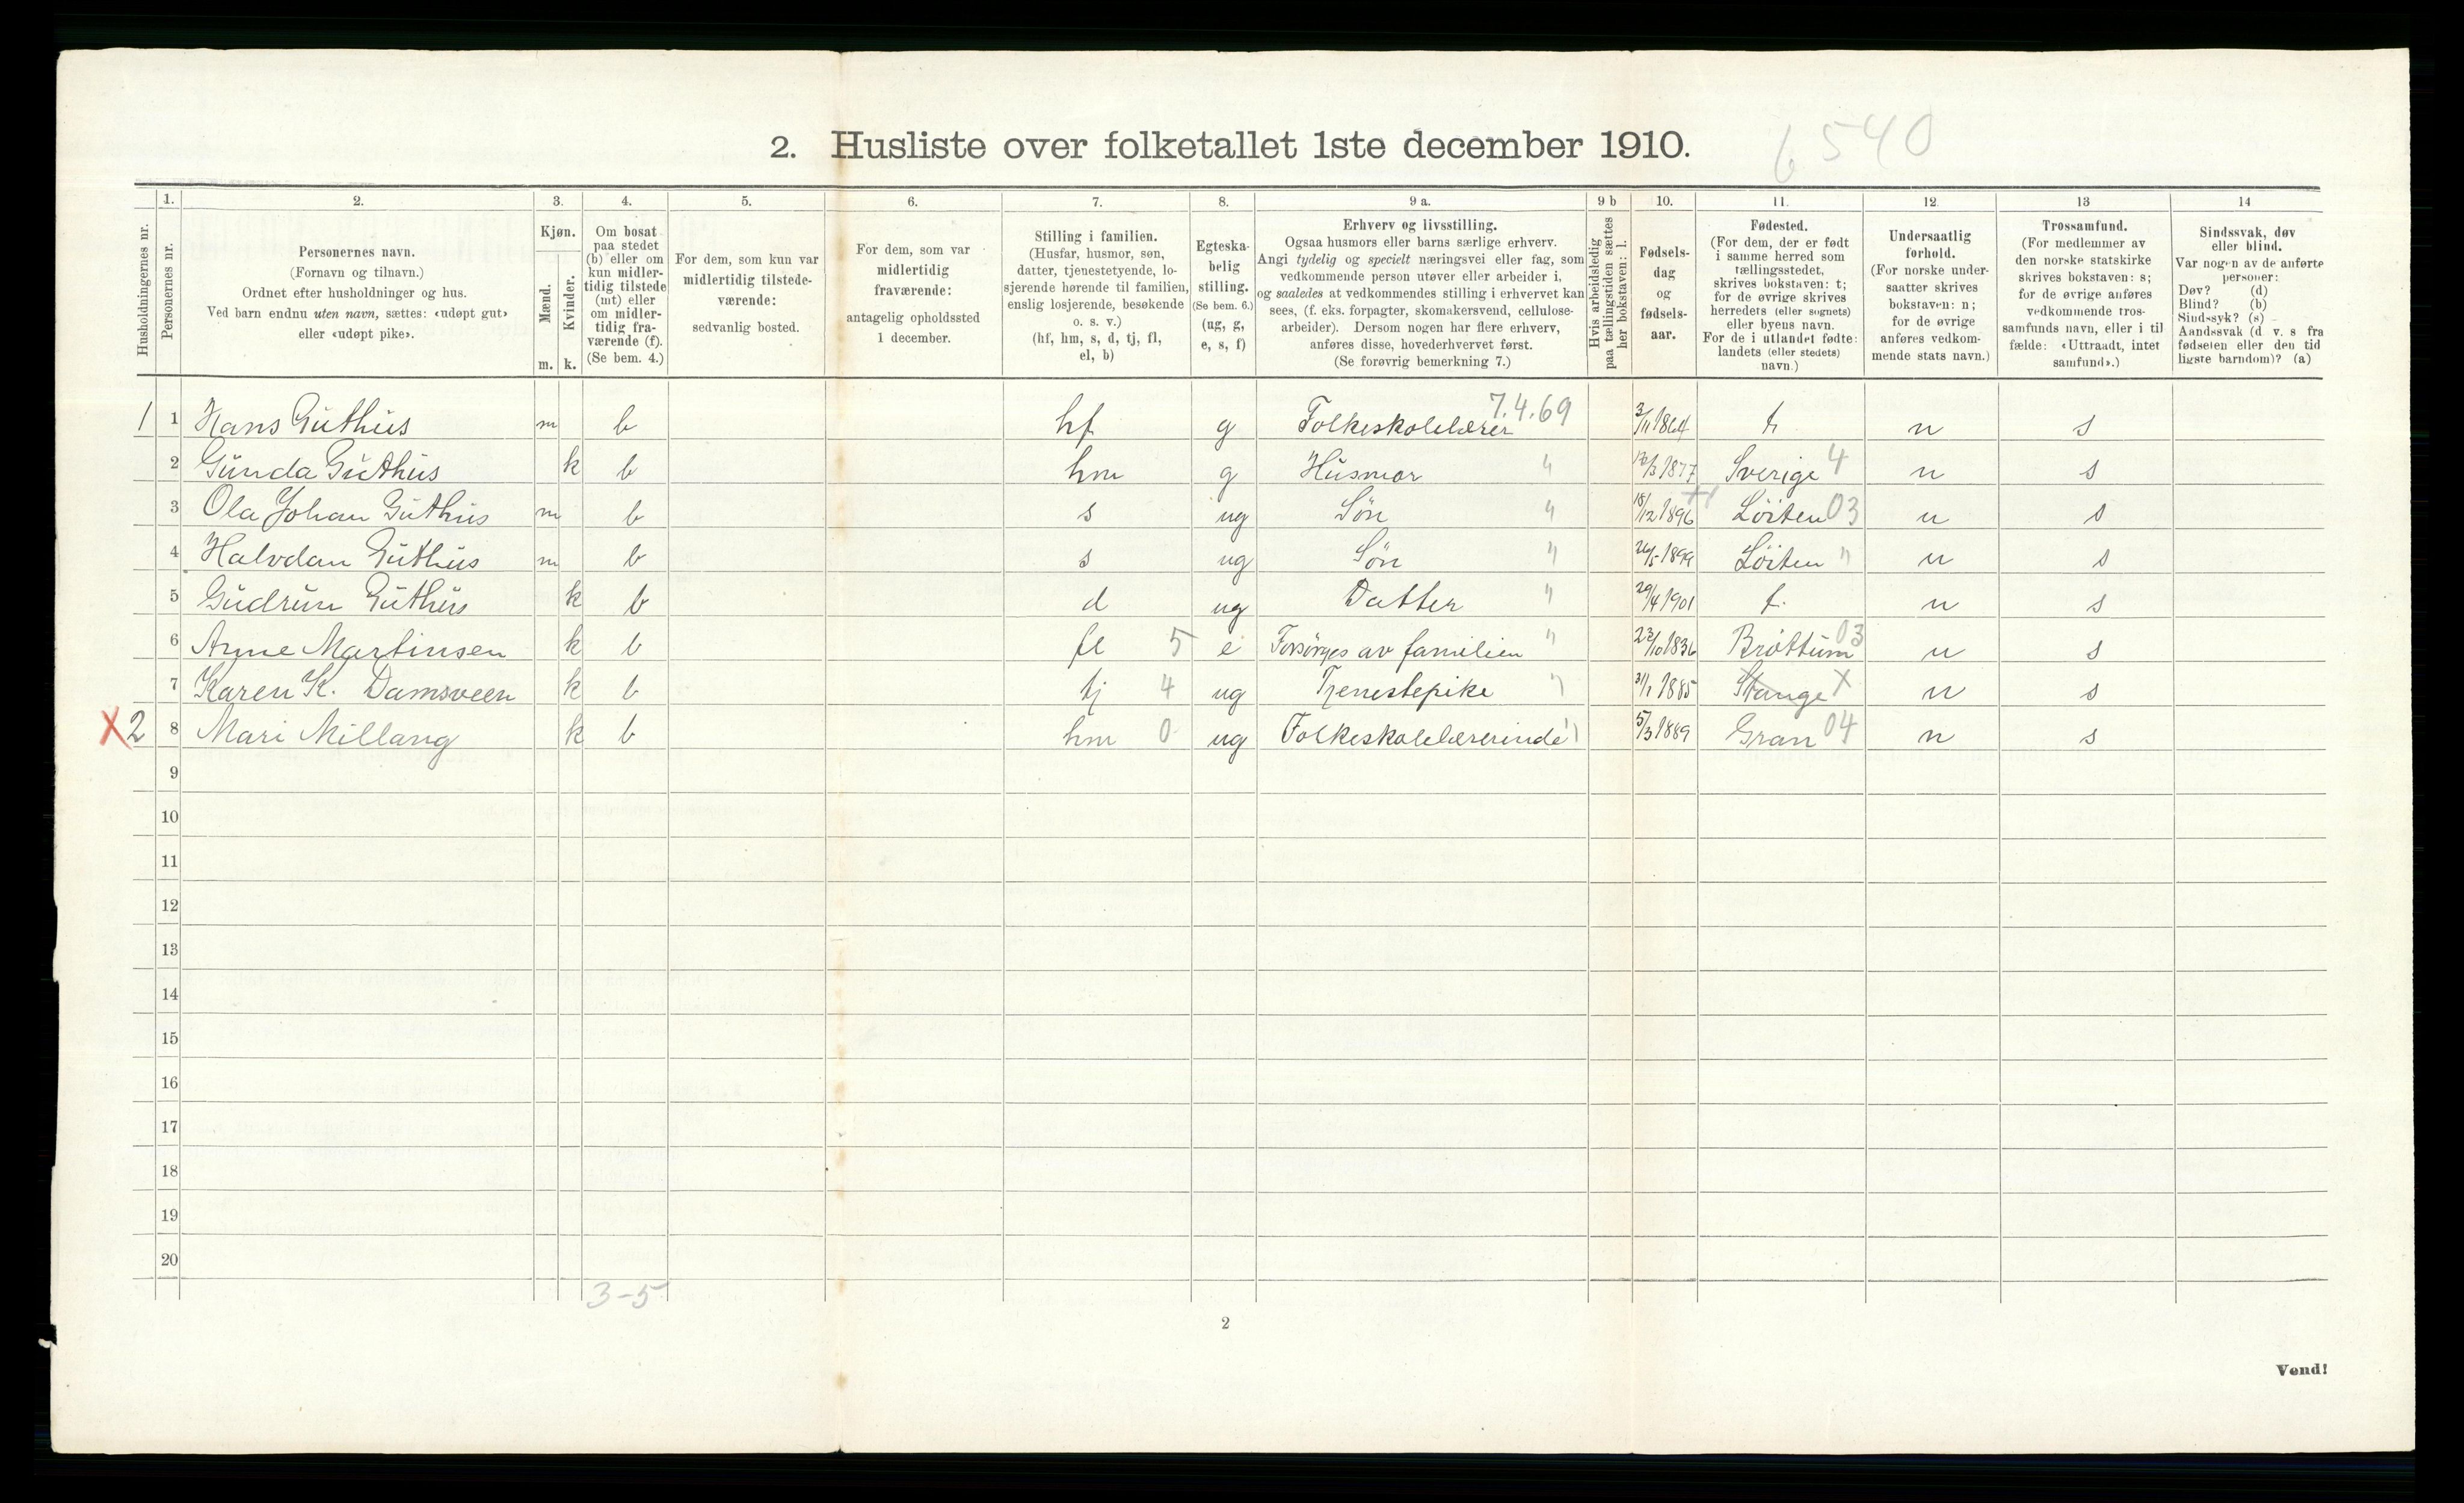 2. Husliste over folketallet 1ste december 1910.
6540
1. 2. 3. 4. 5. 6. 7. 8. 9 a. 9 b 10. 11. 12. 13 14
Husholdningernes nr.
Personernes nr.
Personernes navn.
(Fornavn og tilnavn.)
Ordnet efter husholdninger og hus.
Ved barn endnu uten navn, sættes: «udøpt gut»
eller «udøpt pike».
Kjøn.
Mænd.
Kvinder.
m. k.
Om bosat
paa stedet
(b) eller om
kun midler-
tidig tilstede
(mt) eller
om midler-
tidig fra-
værende (f).
(Se bem. 4.)
For dem, som kun var
midlertidig tilstede-
værende:
sedvanlig bosted.
For dem, som var
midlertidig
fraværende:
antagelig opholdssted
1 december.
Stilling i familien.
(Husfar, husmor, søn,
datter, tjenestetyende, lo-
sjerende hørende til familien,
enslig losjerende, besøkende
o. s. v.)
(hf, hm, s, d, tj, fl,
el, b)
Egteska-
belig
stilling.
(Se bem. 6.)
(ug, g,
e, s, f)
Erhverv og livsstilling.
Ogsaa husmors eller barns særlige erhverv.
Angi tydelig og specielt næringsvei eller fag, som
vedkommende person utøver eller arbeider i,
og saaledes at vedkommendes stilling i erhvervet kan
sees, (f. eks. forpagter, skomakersvend, cellulose-
arbeider). Dersom nogen har flere erhverv,
anføres disse, hovederhvervet først.
(Se forøvrig bemerkning 7.)
Hvis arbeidsledig
paa tællingstiden sættes
her bokstaven: l.
Fødsels-
dag
og
fødsels-
aar.
Fødested.
(For dem, der er født
i samme herred som
tællingsstedet,
skrives bokstaven: t;
for de øvrige skrives
herredets (eller sognets)
eller byens navn.
For de i utlandet fødte:
landets (eller stedets)
navn.)
Undersaatlig
forhold.
(For norske under-
saatter skrives
bokstaven: n;
for de øvrige
anføres vedkom-
mende stats navn.)
Trossamfund.
(For medlemmer av
den norske statskirke
skrives bokstaven: s;
for de øvrige anføres
vedkommende tros-
samfunds navn, eller i til
fælde: «Uttraadt, intet
samfund».)
Sindssvak, døv
eller blind.
Var nogen av de anførte
personer:
Døv? (d)
Blind? (b)
Sindssyk? (s)
Aandssvak (d. v. s fra
fødselen eller den tid
ligste barndom)? (a)
1 1 Hans Guthus m b hf g Folkeskolelærer 7.4.69 3/11 1864 t. n s
2 Gunda Guthus k b hm g Husmor " /3 1877 Sverige 4 n s
3 Ola Johan Guthus m b s ug Søn " 18/12 1896 Löiten 03 n s
4 Halvdan Guthus m b s ug Søn " 26/5 1899 Löiten " n s
5 Gudrun Guthus k b d ug Datter " 29/4 1901 t. n s
6 Anne Martinsen k b fl 5 e Forsørges av familien " 23/10 1836 Bröttum 03 n s
7 Karen K. Damsveen k b tj 4 ug Tjenestepike " 31/1 1885 Stange X n s
X 2 8 Mari Millang k b hm 0 ug Folkeskolelærerinde " 5/3 1889 Gran 04 n s
9
10
11
12
13
14
15
16
17
18
19
20
3-5
2
Vend!